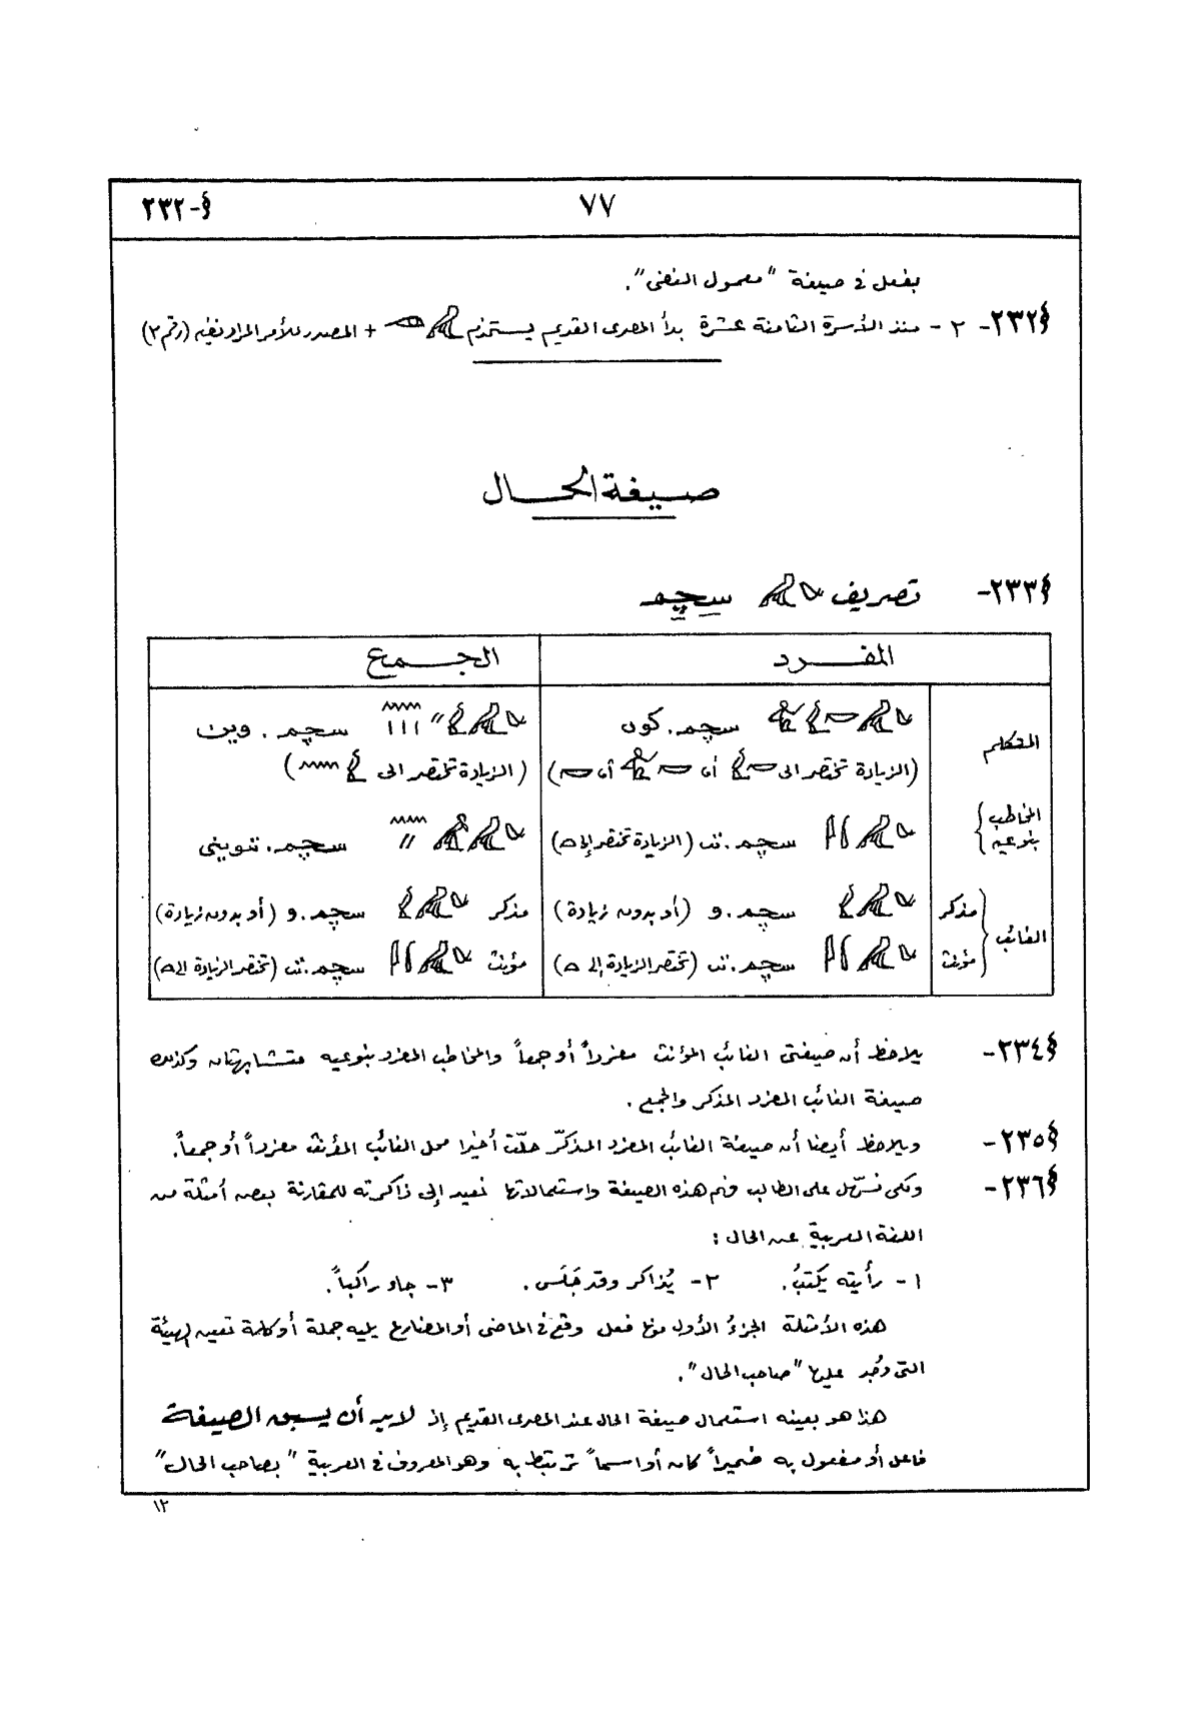 §-٢٣٢
٧٧
بفعل فى صيغة "معمول النفى".
§٢٣٢- ٢- منذ الأسرة الثامنة عشرة بدأ المصرى القديم يستخدم + المصدر للأمر المراد نفيه (رقم ٢)
صيغة الحال
§٢٣٣- تصريف سچم
المفرد الجمع
المتكلم سچم.كون سچم.وين
(الزيادة تختصر الى أو أو) (الزيادة تختصر الى)
المخاطب بنوعيه سچم.تى (الزيادة تختصر إلى) سچم.تيوينى
الغائب مذكر سچم.و (أو بدون زيادة) مذكر سچم.و (أو بدون زيادة)
مؤنث سچم.تى (تختصر الزيادة إلى) مؤنث سچم.تى (تختصر الزيادة إلى)
§٢٣٤- يلاحظ أن صيغتى الغائب المؤنث مفرداً أو جمعاً والمخاطب المفرد بنوعيه متشابهتان وكذلك
صيغة الغائب المفرد المذكر والجمع.
§٢٣٥- ويلاحظ أيضا أن صيغة الغائب المفرد المذكّر حلّت أخيرا محل الغائب المؤنث مفرداً أو جمعاً.
§٢٣٦- ولكى نسهّل على الطالب فهم هذه الصيغة واستعمالاتها نعيد إلى ذاكرته للمقارنة بعض أمثلة من
اللغة العربية عن الحال:
١- رأيته يكتبُ. ٢- يُذاكر وقد جَلَس. ٣- جاء راكباً.
هذه الأمثلة الجزءُ الأول منها فعل وقع فى الماضى أو المضارع يليه جملة أو كلمة تعين الهيئة
التى وُجد عليها "صاحب الحال".
هذا هو بعينه استعمال صيغة الحال عند المصرى القديم إذ لابد أن يسبق الصيغة
فاعل أو مفعول به ضميراً كان أو اسماً ترتبط به وهو المعروف فى العربية "بصاحب الحال"
١٢